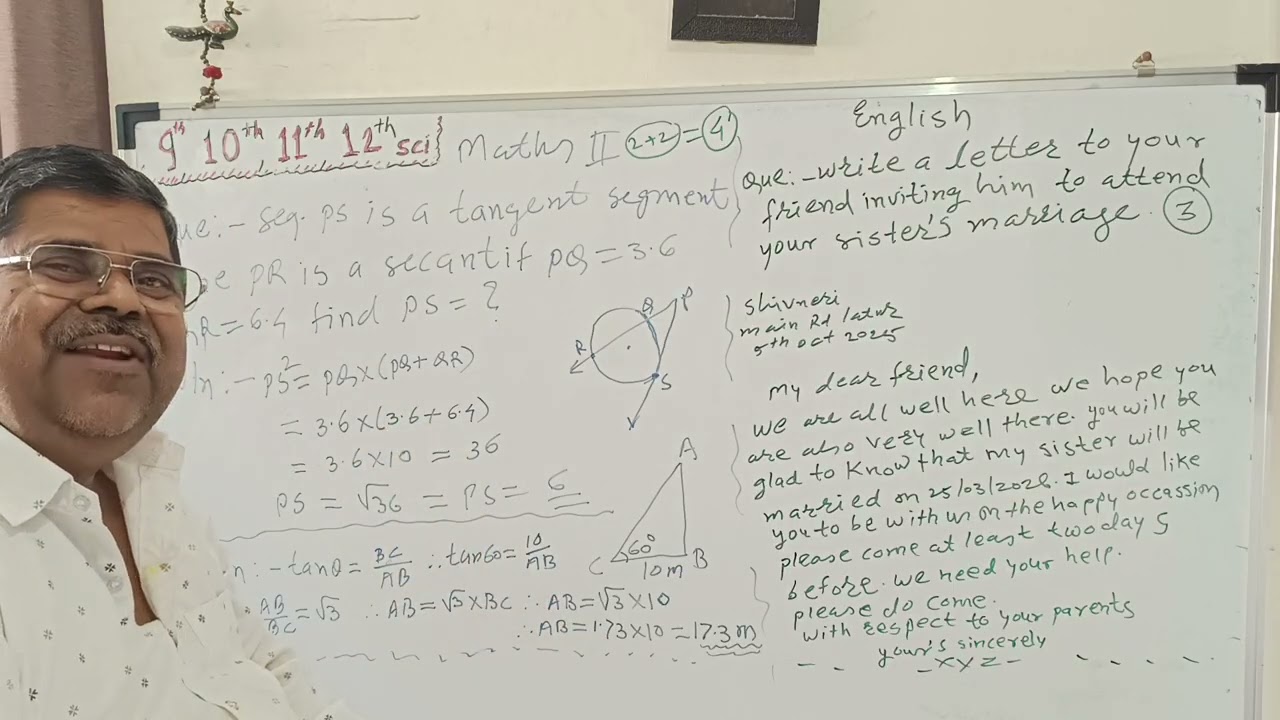 9th 10th 11th 12th sci} Maths II (2+2)=4
ue:- seg. PS is a tangent segment
PR is a secant if PQ=3.6
R=6.4 find PS=?
ln:- PS²=PQ×(PQ+QR)
=3.6×(3.6+6.4)
=3.6×10=36
PS=√36=PS=6
R
Q
P
S
A
60°
C
B
10m
n:-tanθ=BC/AB ∴tan60=10/AB
AB/BC=√3 ∴AB=√3×BC ∴AB=√3×10
∴AB=1.73×10=17.3m
English
Que:-write a letter to your
friend inviting him to attend
your sister's marriage. 3
Shivneri
main Rd latur
5th oct 2025
my dear friend,
we are all well here we hope you
are also very well there. you will be
glad to know that my sister will be
married on 25/03/2026. I would like
you to be with us on the happy occassion
please come at least two days
before. we need your help.
please do come.
with respect to your parents
your's sincerely
-XYZ-